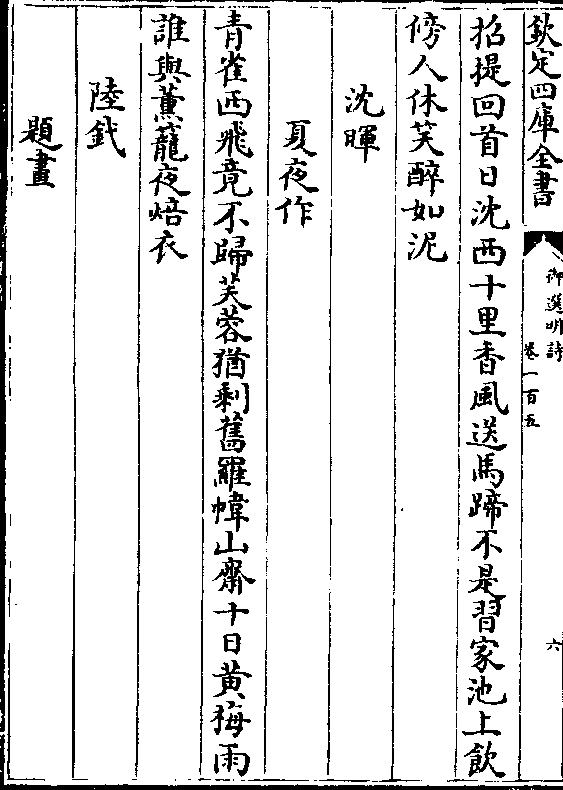 欽定四庫全書
御選明詩
卷一百五
六
招提回首日沈西十里香風送馬蹄不是習家池上飲
傍人休笑醉如泥
沈暉
夏夜作
青雀西飛竟不歸芙蓉猶剩舊羅幃山齋十日黄梅雨
誰與薰籠夜焙衣
陸釴
題畫